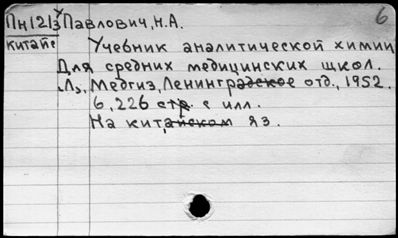 6
Пн1213 Павлович, Н.А.
Китайс
Учебник аналитической химии
Для средних медицинских школ.
Л., Медгиз, Ленинградское отд., 1952.
6, 226 стр. с илл.
На китайском яз.